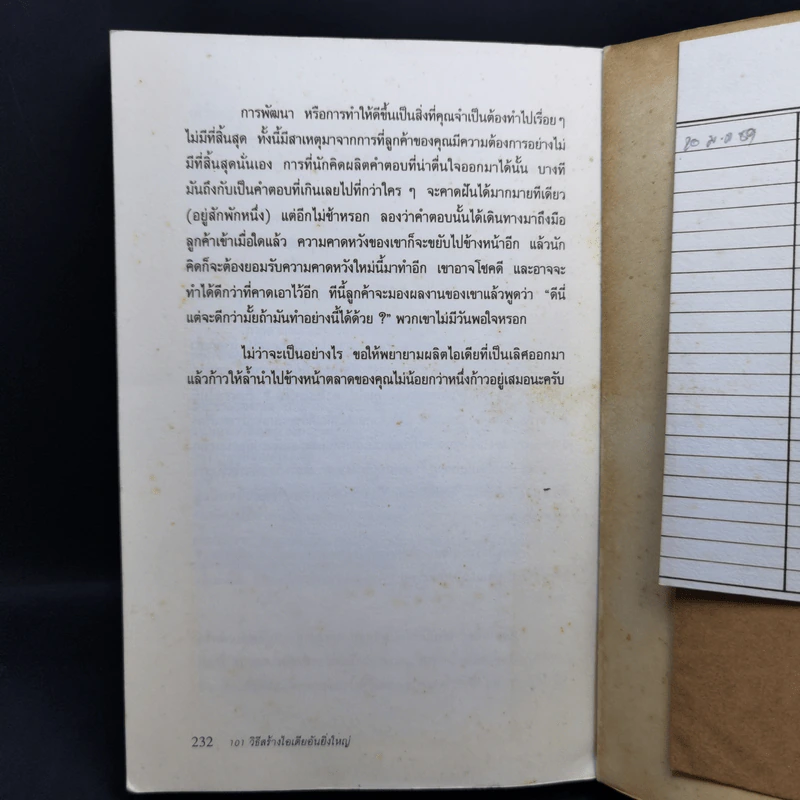 การพัฒนา หรือการทำให้ดีขึ้นเป็นสิ่งที่คุณจำเป็นต้องทำไปเรื่อยๆ
ไม่มีที่สิ้นสุด ทั้งนี้มีสาเหตุมาจากการที่ลูกค้าของคุณมีความต้องการอย่างไม่
มีที่สิ้นสุดนั่นเอง การที่นักคิดผลิตคำตอบที่น่าตื่นใจออกมาได้นั้น บางที
มันถึงกับเป็นคำตอบที่เกินเลยไปที่กว่าใคร ๆ จะคาดฝันได้มากมายทีเดียว
(อยู่สักพักหนึ่ง) แต่อีกไม่ช้าหรอก ลองว่าคำตอบนั้นได้เดินทางมาถึงมือ
ลูกค้าเข้าเมื่อใดแล้ว ความคาดหวังของเขาก็จะขยับไปข้างหน้าอีก แล้วนัก
คิดก็จะต้องยอมรับความคาดหวังใหม่นี้มาทำอีก เขาอาจโชคดี และอาจจะ
ทำได้ดีกว่าที่คาดเอาไว้อีก ทีนี้ลูกค้าจะมองผลงานของเขาแล้วพูดว่า "ดีนี่
แต่จะดีกว่ามั้ยถ้ามันทำอย่างนี้ได้ด้วย ?" พวกเขาไม่มีวันพอใจหรอก
ไม่ว่าจะเป็นอย่างไร ขอให้พยายามผลิตไอเดียที่เป็นเลิศออกมา
แล้วก้าวให้ล้ำนำไปข้างหน้าตลาดของคุณไม่น้อยกว่าหนึ่งก้าวอยู่เสมอนะครับ
232 101 วิธีสร้างไอเดียอันยิ่งใหญ่